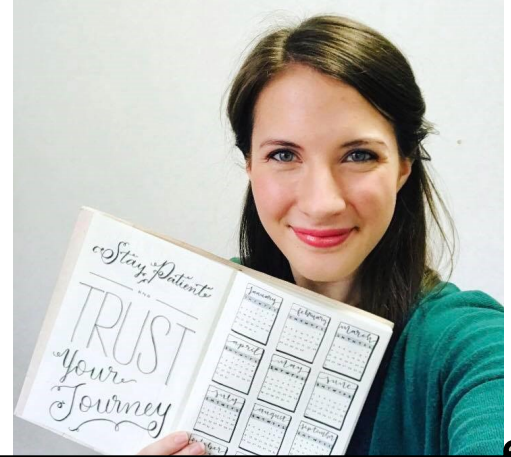 Stay Patient
AND
TRUST
Your
Journey
January
February
March
April
May
June
July
August
September